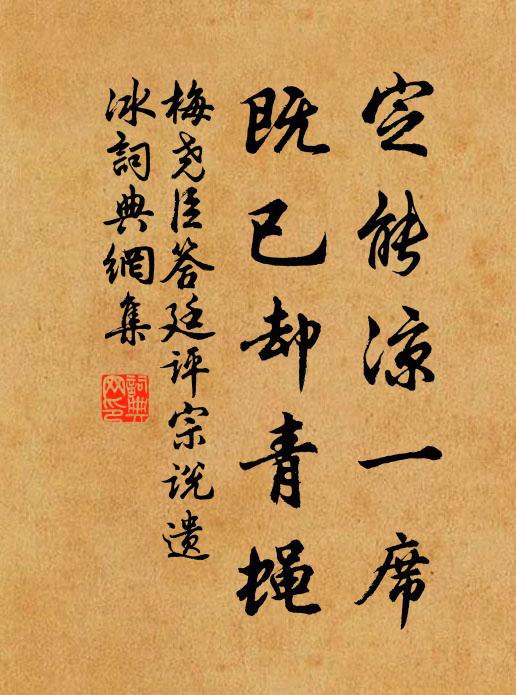 定能凉一席
既已却青蝇
梅尧臣答廷评宗说遗
冰詞典網集
詞典网印